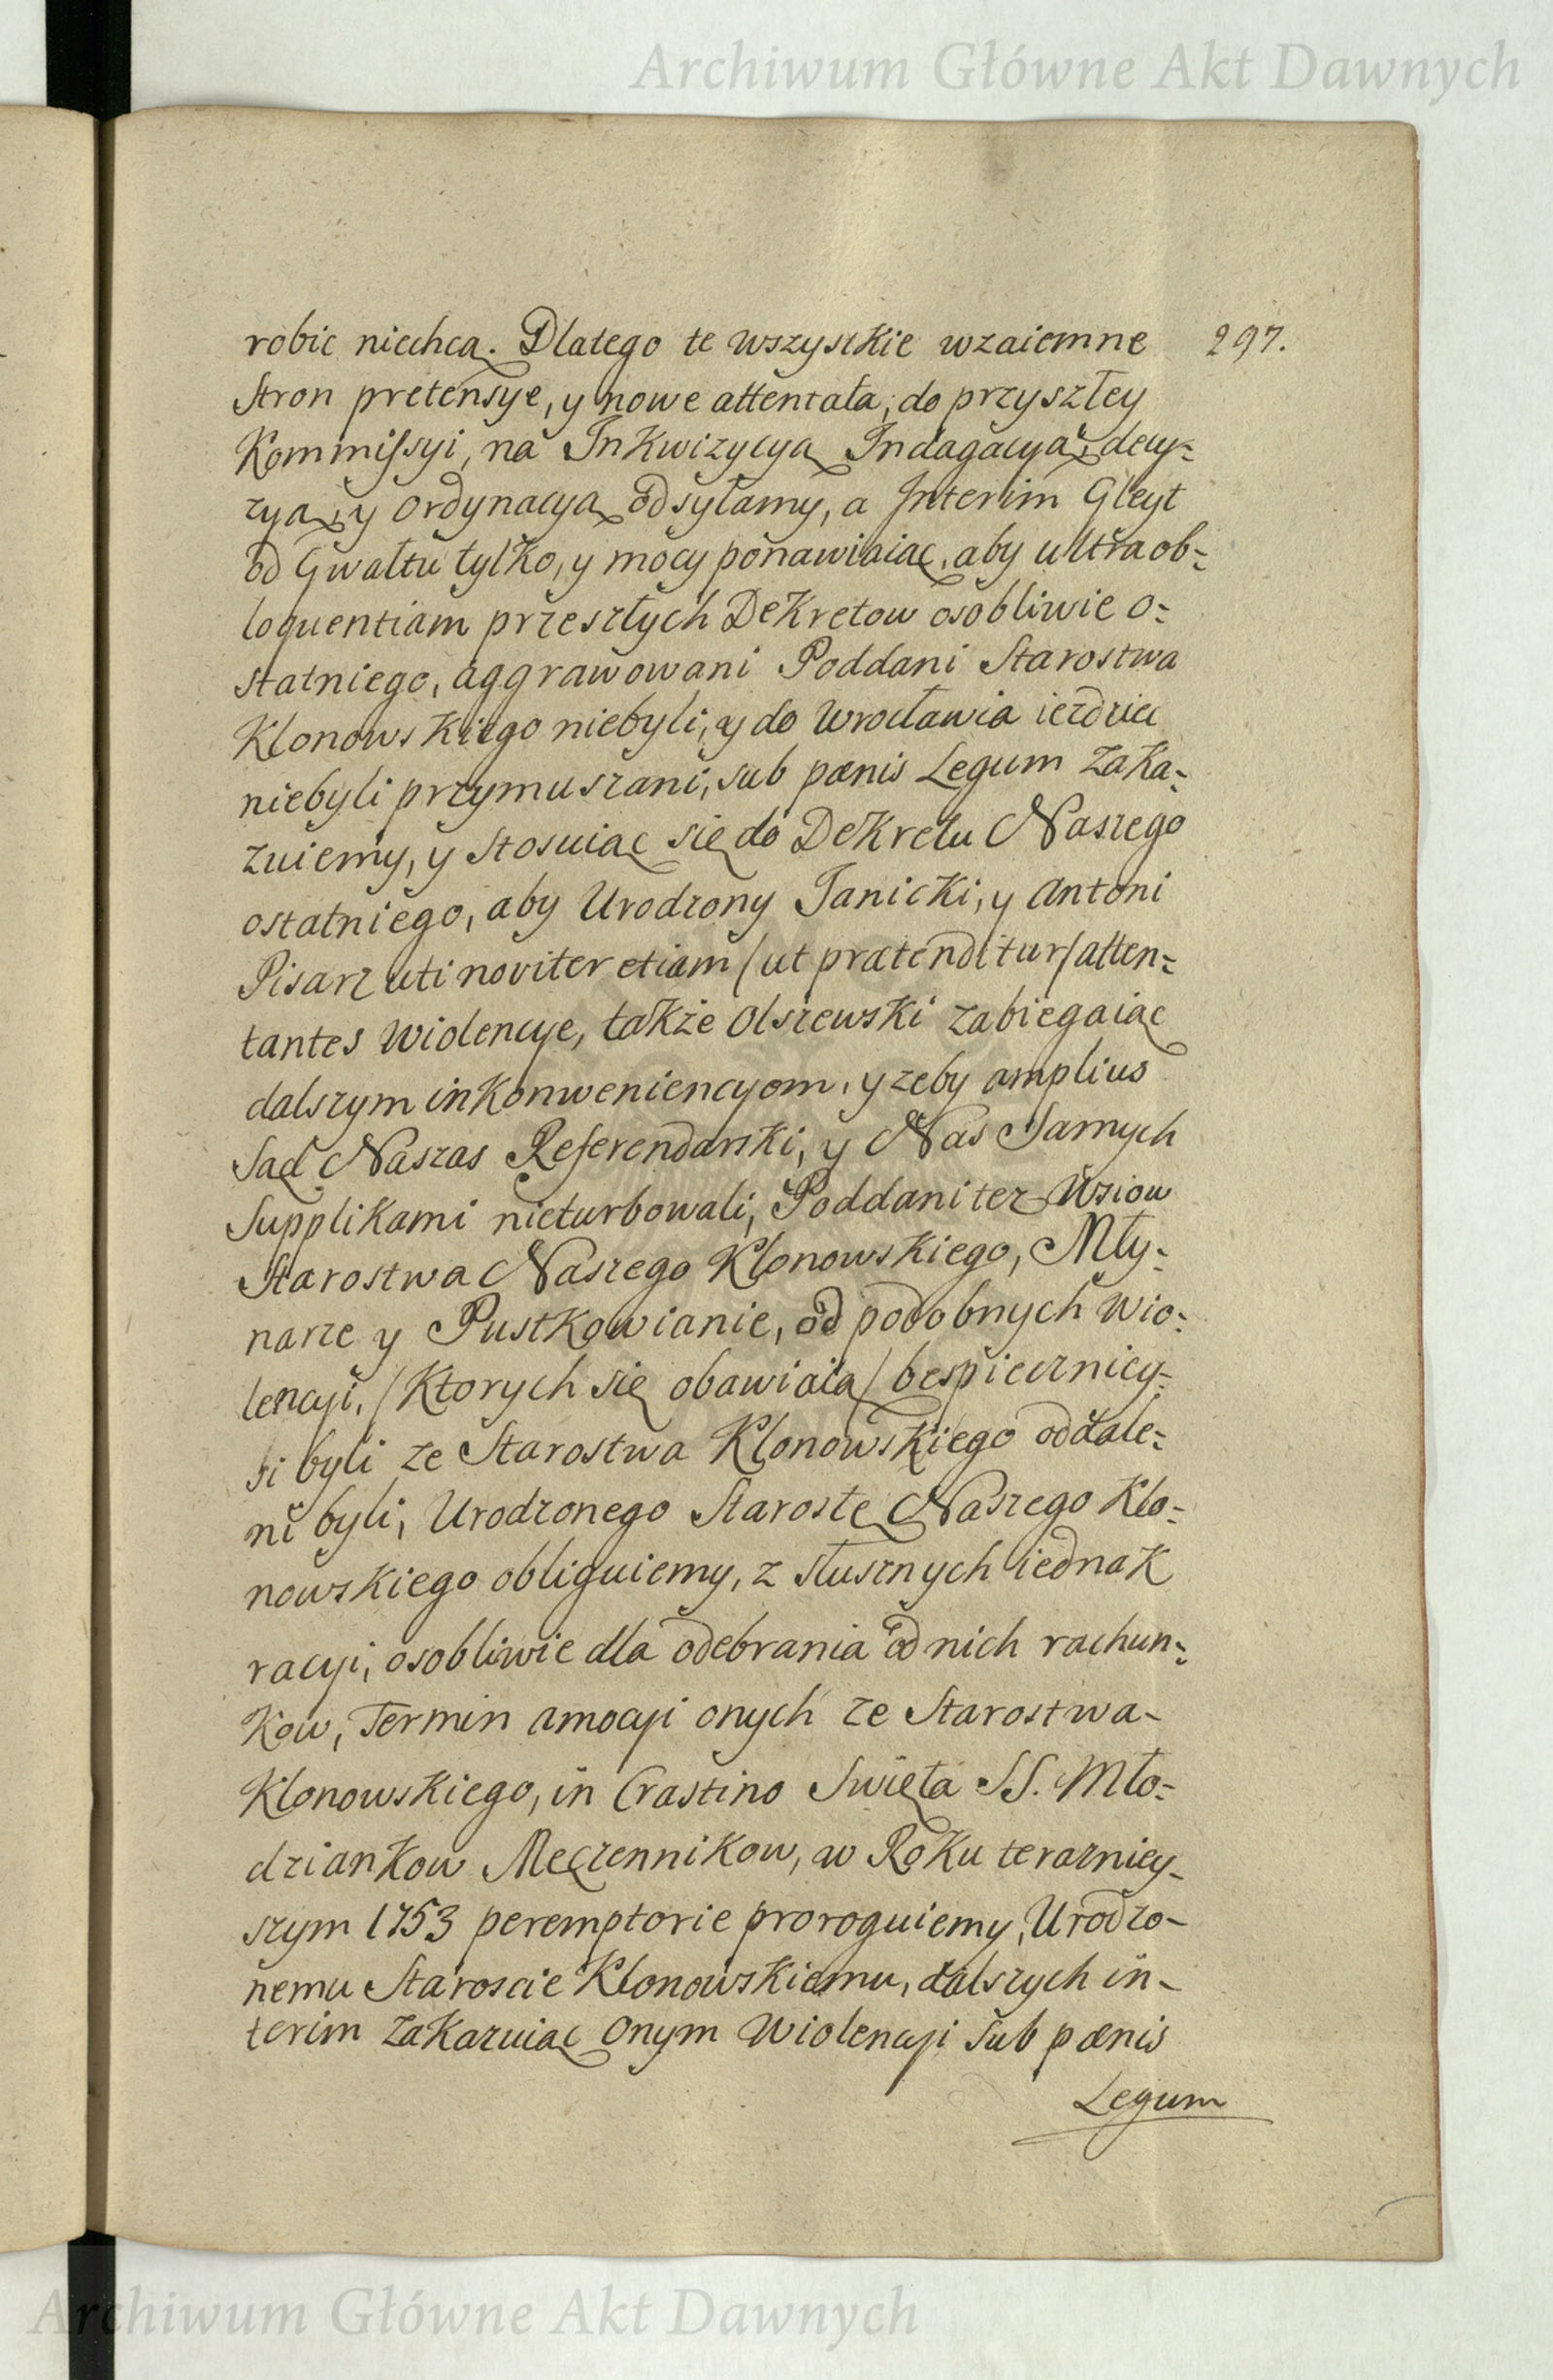 Archiwum Główne Akt Dawnych
297.
robic niechcą. Dlatego te wszystkie wzaiemne
Stron pretensye, y nowe attentata, do przyszłey
Kommissyi, na Inkwizycyą Indagacyą, decy=
zyą, y ordynacyą odsyłamy, a Interim Gleyt
od Gwałtu tylko, y mocy ponawiaiąc, aby ultra ob=
loquentiam przeszłych Dekretow osobliwie o=
statniego, aggrawowani Poddani Starostwa
Klonowskiego niebyli, y do Wrocławia iezdzić
niebyli przymuszani, sub pœnis Legum zaka=
zuiemy, y stosuiąc się do Dekretu Naszego
ostatniego, aby Urodzony Janicki, y Antoni
Pisarz uti noviter etiam /ut prætenditur/ atten=
tantes wiolencye, także Olszewski zabiegaiąc
dalszym inkonweniencyom, y zeby amplius
Sąd Naszas Referendarski, y Nas Samych
Supplikami nieturbowali, Poddani tez Wsiow
Starostwa Naszego Klonowskiego, Mły=
narze y Pustkowianie, od podobnych wio=
lencyi, /ktorych się obawiaią/ bespieczniey=
si byli ze Starostwa Klonowskiego oddale=
ni byli, Urodzonego Starostę Naszego Klo=
nowskiego obliguiemy, z słusznych iednak
racyi, osobliwie dla odebrania od nich rachun=
kow, Termin amocyi onych ze Starostwa-
Klonowskiego, in Crastino Swięta SS. Mło=
dziankow Męczennikow, w Roku terazniey-
szym 1753 peremptorie proroguiemy, Urodzo-
nemu Staroscie Klonowskiemu, dalszych in-
terim zakazuiąc onym Wiolencyi sub pœnis
Legum
Archiwum Główne Akt Dawnych